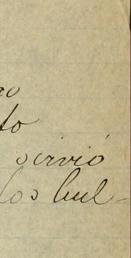 ro
to
sirvió
los bul-